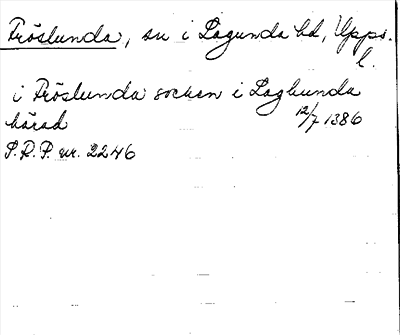 Fröslunda, sn i Lagunda hd, Upps.
l.
i Fröslunda socken i Laghunda
härad 12/7 1386
S.R.P. nr. 2246